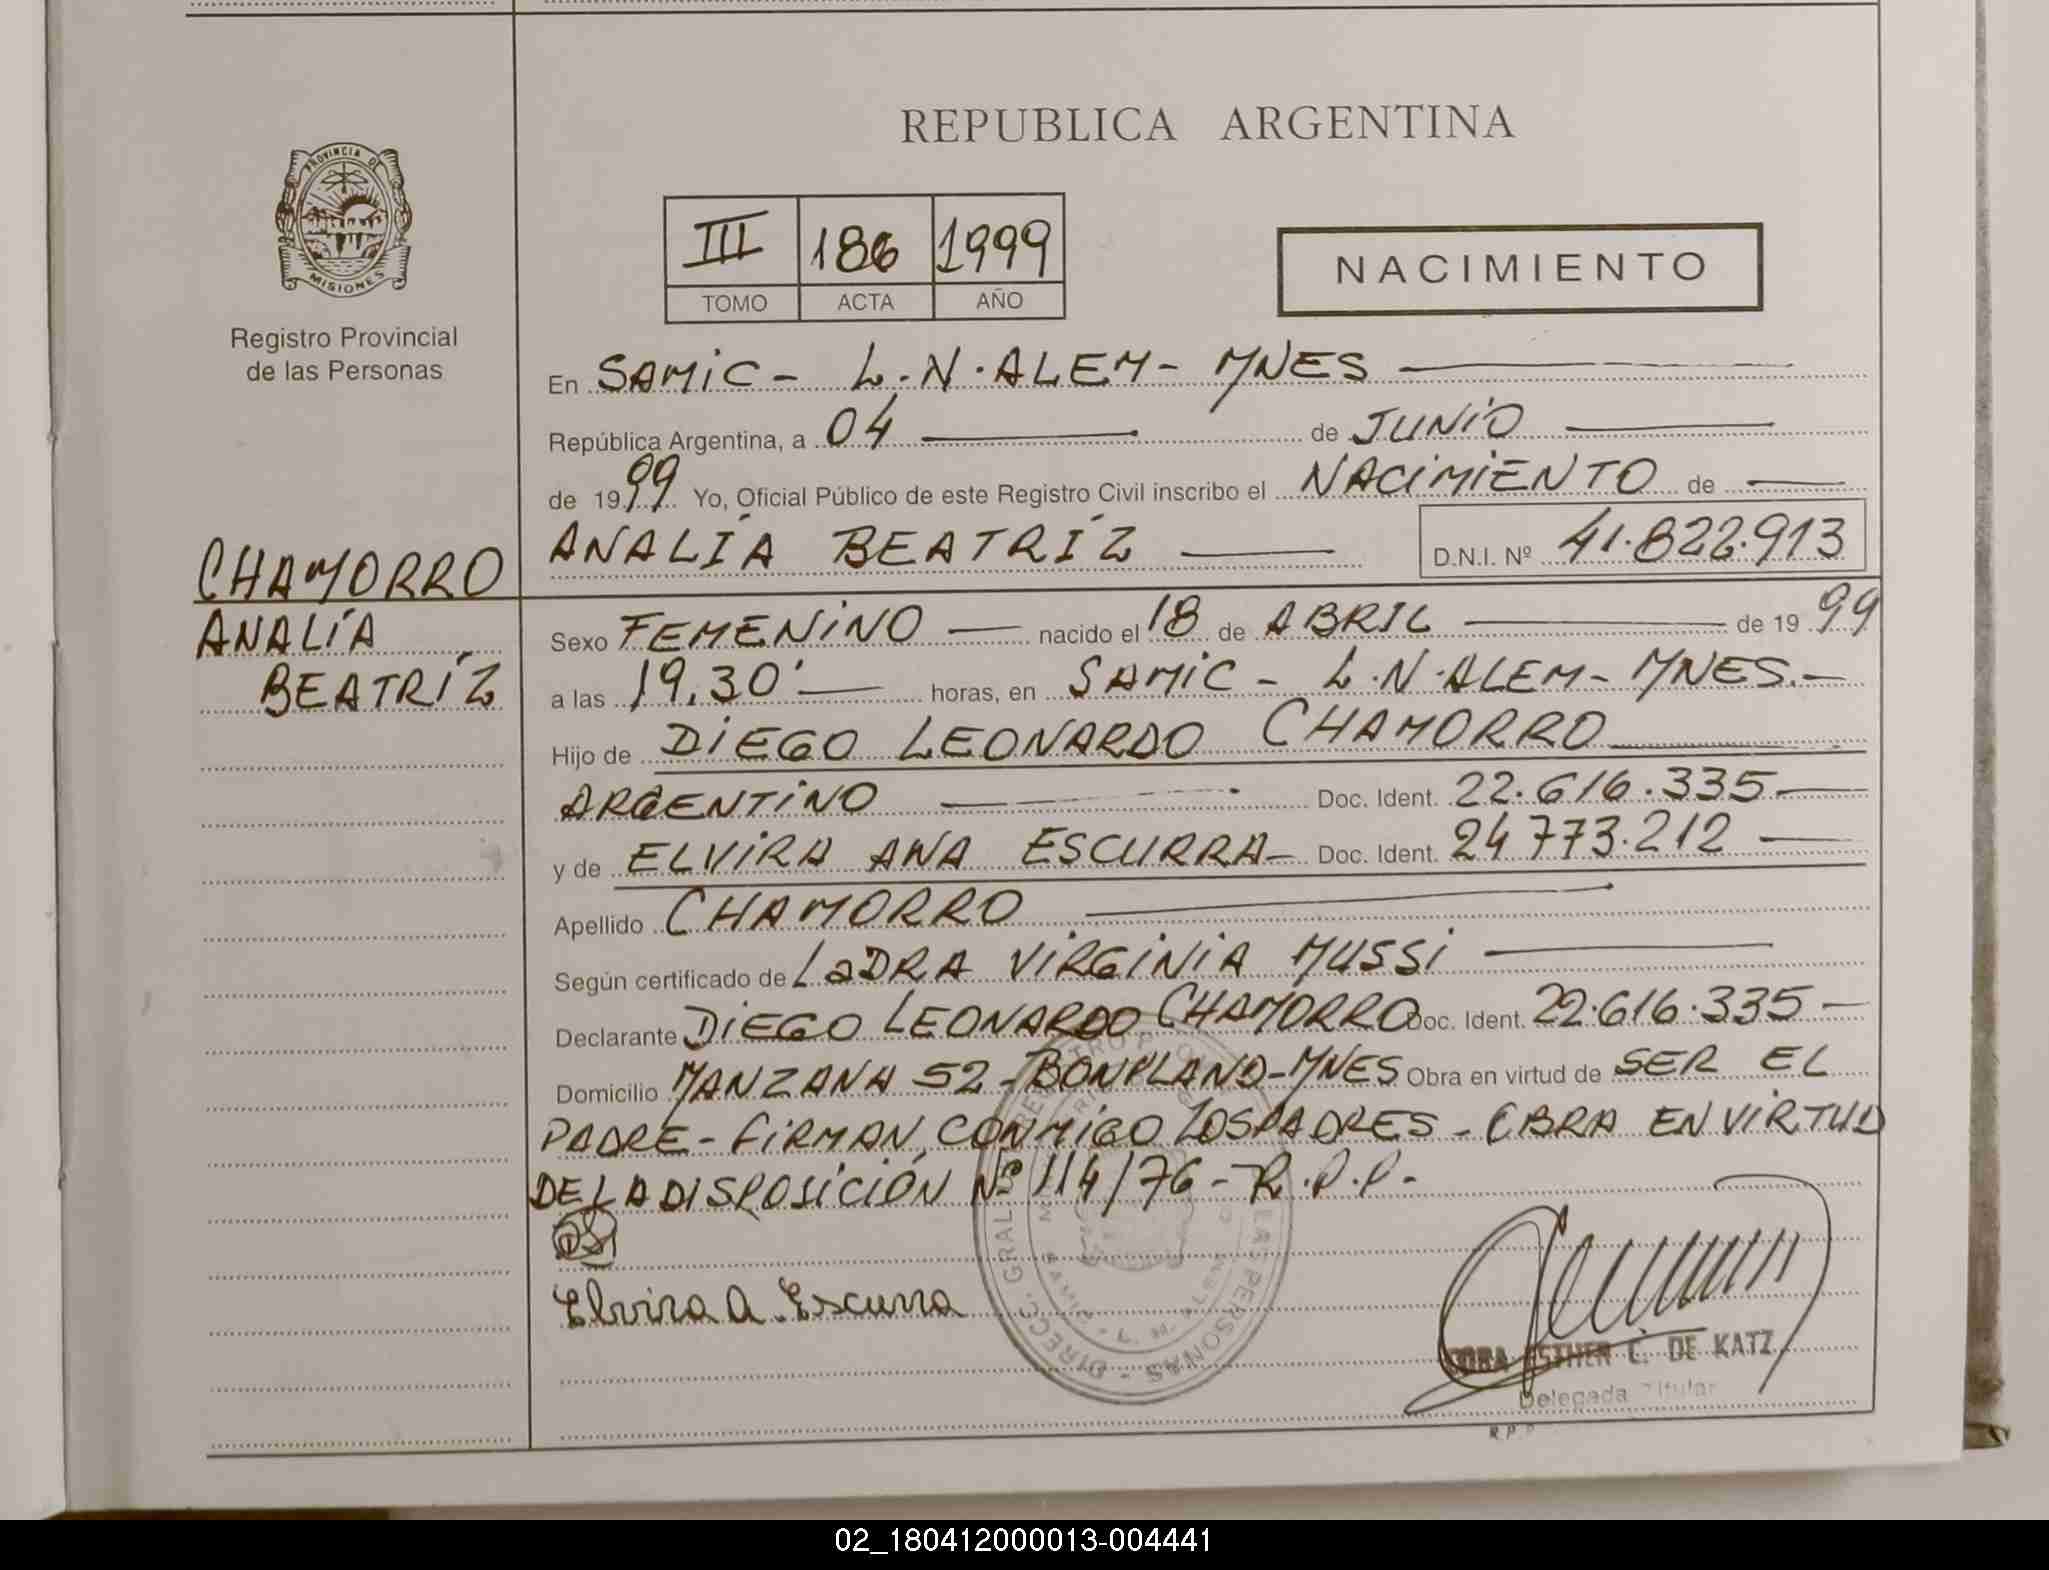 REPUBLICA ARGENTINA
PROVINCIA DE
MISIONES
Registro Provincial
de las Personas
III 186 1999
TOMO ACTA AÑO
NACIMIENTO
En SAMIC - L.N.ALEM - MNES
República Argentina, a 04 de JUNIO
de 1999 Yo, Oficial Público de este Registro Civil inscribo el NACIMIENTO de
ANALÍA BEATRÍZ D.N.I. Nº 41.822.913
CHAMORRO
ANALÍA
BEATRÍZ
Sexo FEMENINO nacido el 18 de ABRIL de 1999
a las 19,30' horas, en SAMIC - L.N.ALEM - MNES.-
Hijo de DIEGO LEONARDO CHAMORRO
ARGENTINO Doc. Ident. 22.616.335
y de ELVIRA ANA ESCURRA Doc. Ident. 24 773.212
Apellido CHAMORRO
Según certificado de VIRGINIA MUSSI
Declarante DIEGO LEONARDO CHAMORRO Doc. Ident. 22.616.335 -
Domicilio MANZANA 52 - BONPLAND - MNES Obra en virtud de SER EL
PADRE - FIRMAN CONMIGO LOS PADRES - OBRA EN VIRTUD
DE LA DISPOSICIÓN Nº 114/76 - R.P.P.-
Elvira A. Escurra
ESTHER C. DE KATZ
Delegada Titular
R.P.P
DIRECC. GRAL. PERSONAS
02_180412000013-004441